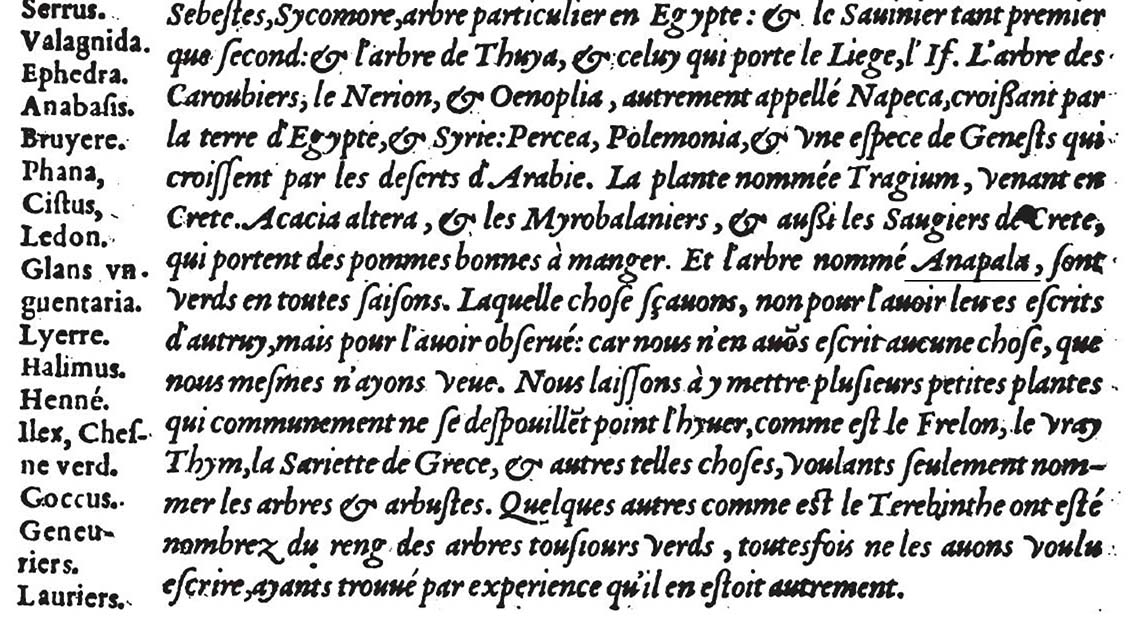 Serrus.
Valagnida.
Ephedra.
Anabaſis.
Bruyere.
Phana,
Ciſtus,
Ledon.
Glans vn-
guentaria.
Lyerre.
Halimus.
Henné.
Ilex, Cheſ-
ne verd.
Coccus.
Geneu-
riers.
Lauriers.
Sebeſtes, Sycomore, arbre particulier en Egypte: & le Sauinier tant premier
que ſecond: & l'arbre de Thuya, & celuy qui porte le Liege, l'If. L'arbre des
Caroubiers, le Nerion, & Oenoplia, autrement appellé Napeca, croiſſant par
la terre d'Egypte, & Syrie: Percea, Polemonia, & vne eſpece de Geneſts qui
croiſſent par les deſerts d'Arabie. La plante nommée Tragium, venant en
Crete. Acacia altera, & les Myrobalaniers, & auſſi les Saugiers de Crete,
qui portent des pommes bonnes à manger. Et l'arbre nommé Anapala, ſont
verds en toutes ſaiſons. Laquelle choſe ſçauons, non pour l'auoir leu es eſcrits
d'autruy, mais pour l'auoir obſerué: car nous n'en auõs eſcrit aucune choſe, que
nous meſmes n'ayons veue. Nous laiſſons à y mettre pluſieurs petites plantes
qui communement ne ſe deſpouillẽt point l'hyuer, comme eſt le Frelon, le vray
Thym, la Sariette de Grece, & autres telles choſes, voulants ſeulement nom-
mer les arbres & arbuſtes. Quelques autres comme eſt le Terebinthe ont eſté
nombrez du reng des arbres touſiours verds, toutesfois ne les auons voulu
eſcrire, ayants trouué par experience qu'il en eſtoit autrement.